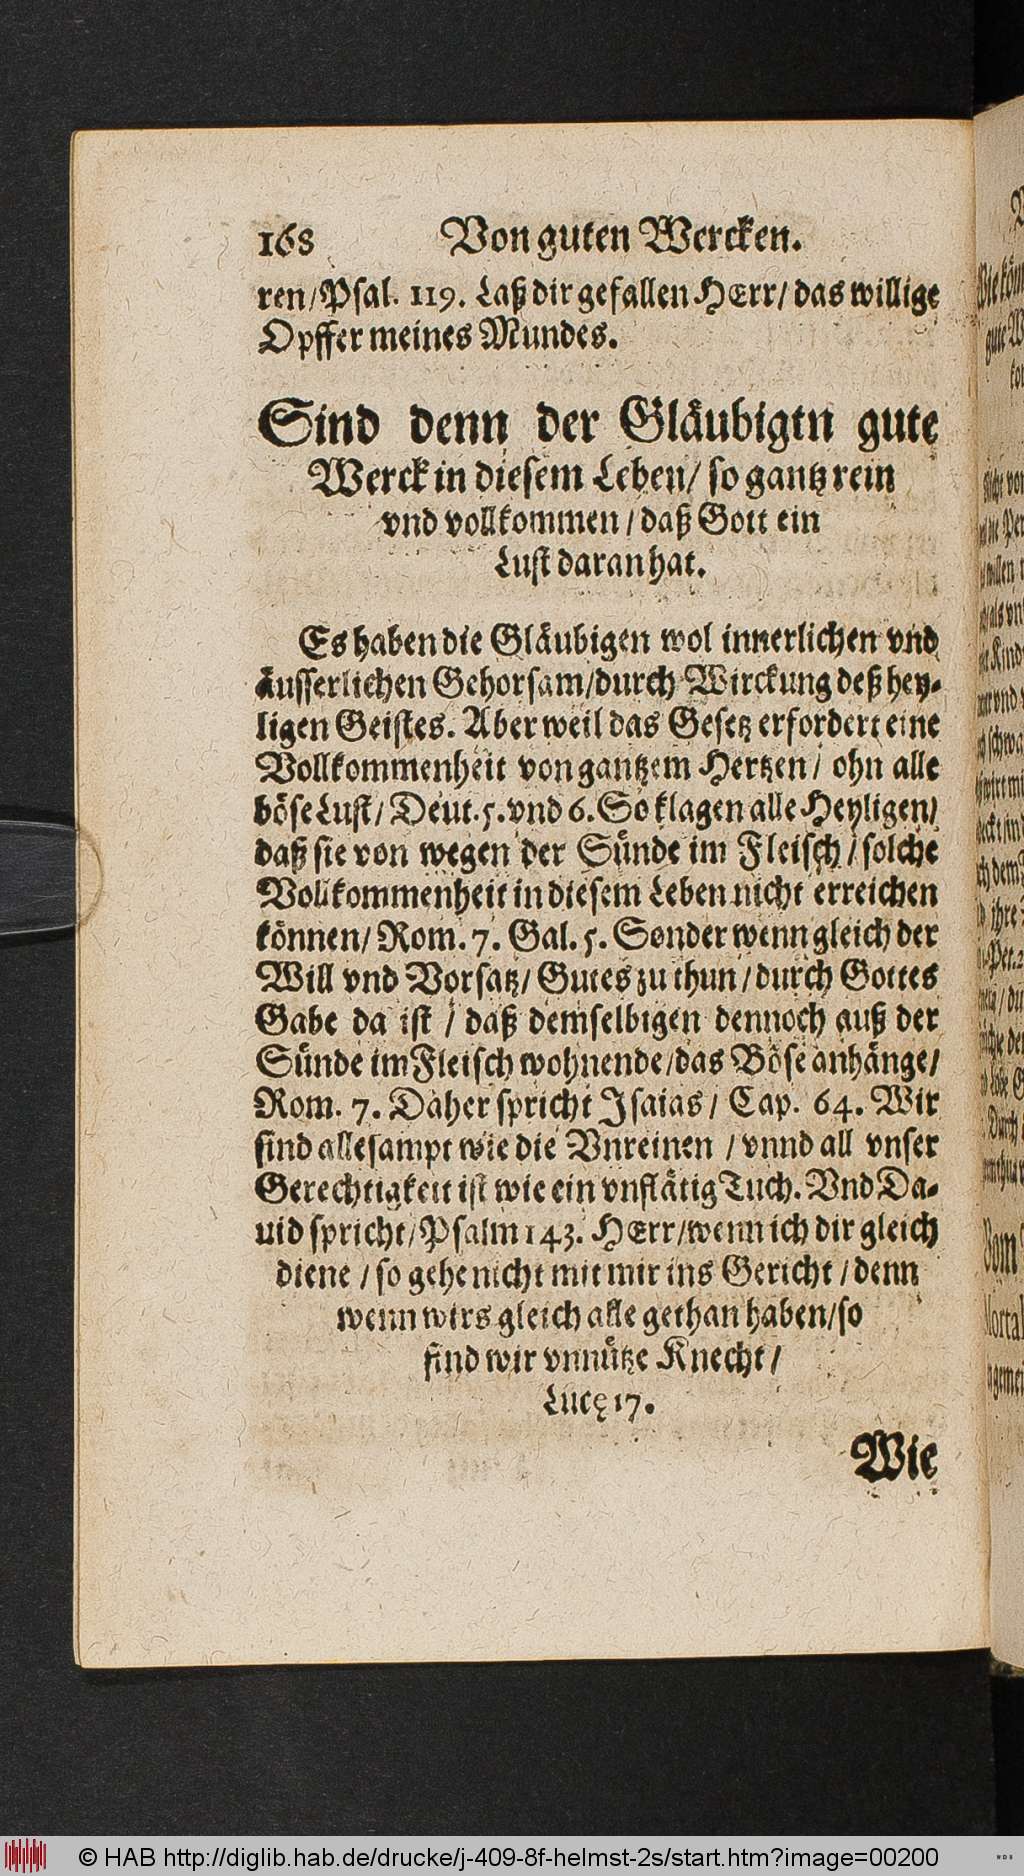 168 Von guten Wercken.
ren/Psal. 119. Laß dir gefallen HErr/ das willige
Opffer meines Mundes.
Sind denn der Gläubigtn gute
Werck in diesem Leben/ so gantz rein
vnd vollkommen / daß Gott ein
Lust daran hat.
Es haben die Gläubigen wol innerlichen vnd
äusserlichen Gehorsam/durch Wirckung deß hey-
ligen Geistes. Aber weil das Gesetz erfordert eine
Vollkommenheit von gantzem Hertzen / ohn alle
böse Lust/ Deut. 5. vnd 6. So klagen alle Heyligen/
daß sie von wegen der Sünde im Fleisch / solche
Vollkommenheit in diesem Leben nicht erreichen
können/ Rom. 7. Gal. 5. Sonder wenn gleich der
Will vnd Vorsatz/ Gutes zu thun / durch Gottes
Gabe da ist / daß demselbigen dennoch auß der
Sünde im Fleisch wohnende/das Böse anhänge/
Rom. 7. Daher spricht Isaias / Cap. 64. Wir
sind allesampt wie die Vnreinen / vnnd all vnser
Gerechtigkeit ist wie ein vnflätig Tuch. Vnd Da-
uid spricht/Psalm 143. HErr/wenn ich dir gleich
diene / so gehe nicht mit mir ins Gericht / denn
wenn wirs gleich alle gethan haben/so
sind wir vnnütze Knecht /
Lucę 17.
Wie
© HAB http://diglib.hab.de/drucke/j-409-8f-helmst-2s/start.htm?image=00200